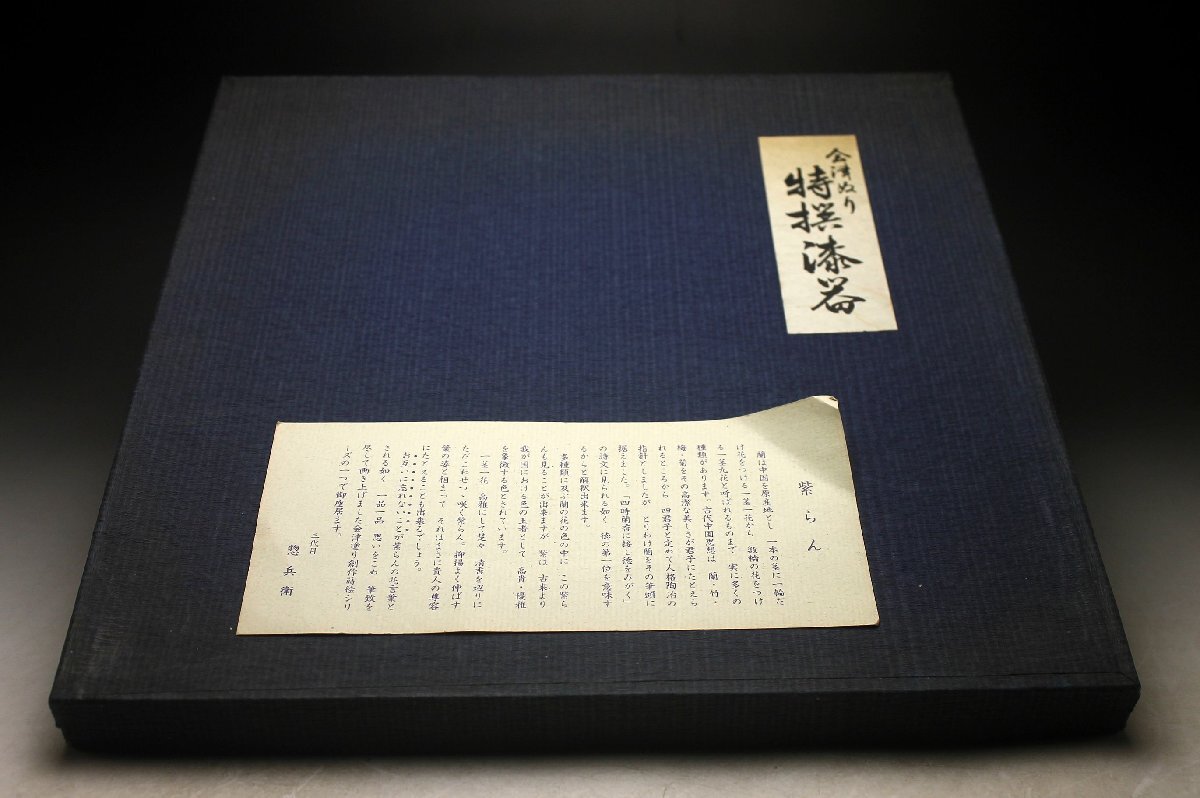 会津ぬり
特撰漆器
紫らん
蘭は中国を原産地とし 一本の茎に一輪だ
け花をつける一茎一花から 数輪の花をつけ
る一茎九花と呼ばれるものまで 実に多くの
種類があります。古代中国思想は 蘭・竹・
梅・菊をその高潔な美しさが君子にたとえら
れるところから 四君子と定めて人格陶冶の
指針としましたが とりわけ蘭をその筆頭に
据えました。「四時蘭斎に接し徳をのがく」
の詩文に見られる如く 徳の第一位を意味す
るからと解釈出来ます。
多種類に及ぶ蘭の花の色の中に この紫ら
んも見ることが出来ますが 紫は 古来より
我が国における色の王者として 高貴・優雅
を象徴する色とされています。
一茎一花 高雅にして楚々 清書を辺りに
ただこわせつゝ咲く紫らん。抑揚よく伸ばす
葉の姿と相まって それはまさに貴人の典容
にたとえることも出来るでしょう。
お互いに忘れないことが紫らんの花言葉と
される如く 一品一品 思いをこめ 筆致を
尽して画き上げました会津塗り創作蒔絵シリ
ーズの一つで御座居ます。
三代目
惣兵衛